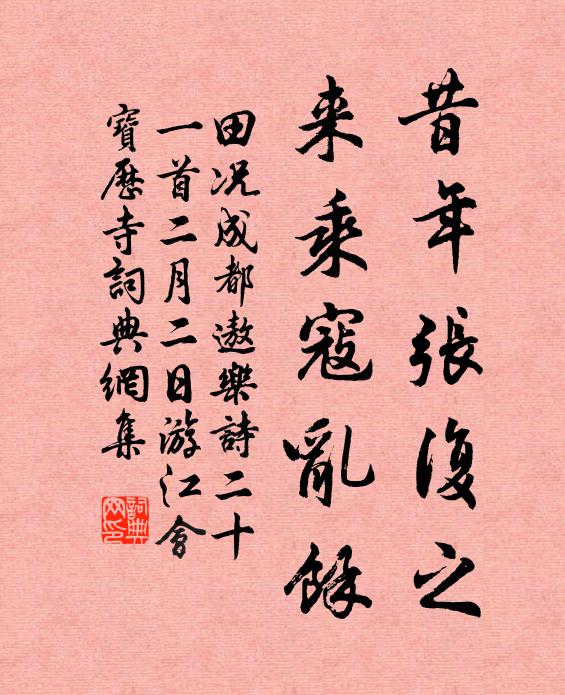 昔年張復之
来乘寇亂餘
田况成都遨樂詩二十
一首二月二日游江會
寶歷寺詞典網集
詞典網印